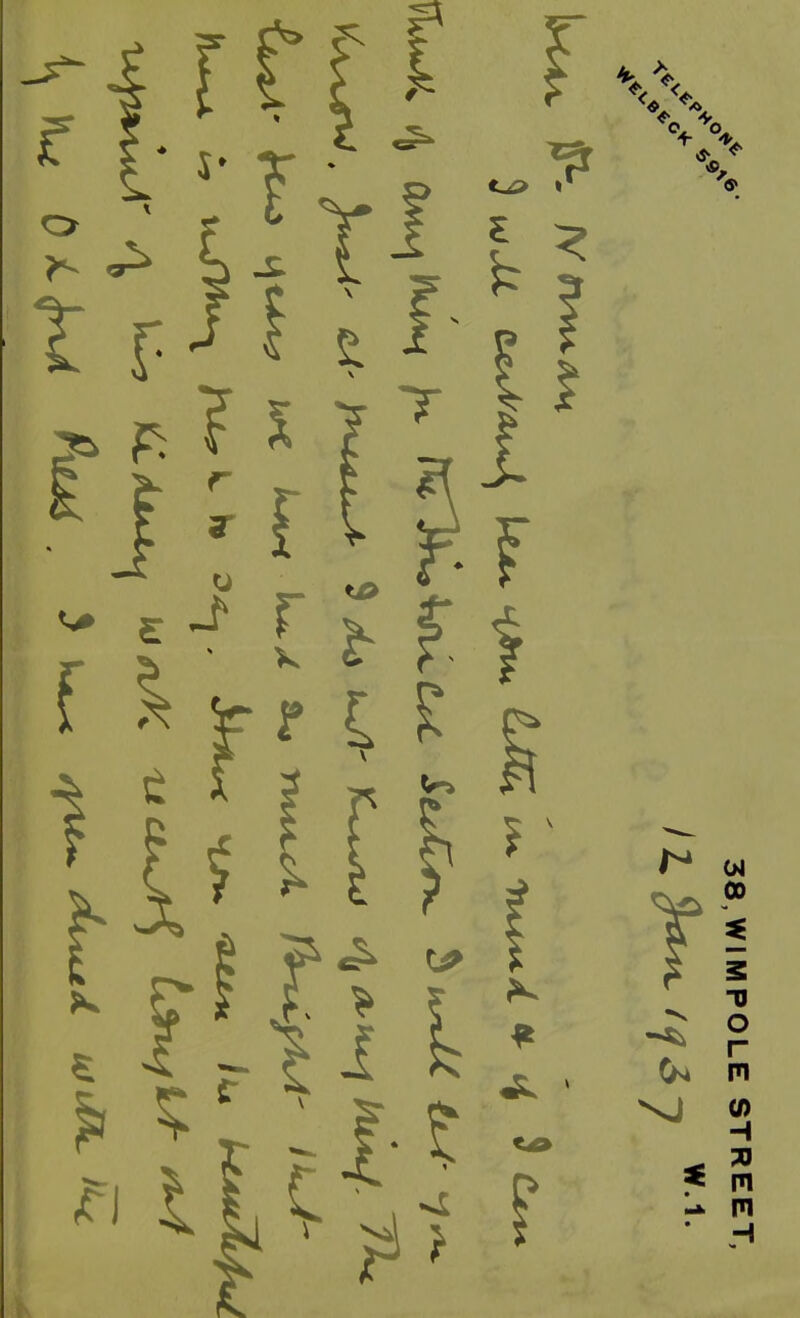 TELEPHONE
WELBECK 5916.
38, WIMPOLE STREET,
W.1.
12 Jan 1937
Dear Dr. Norman
I will certainly keep your letter in mind & if I can
think of anything for the Historical Section I will let you
know. Just at present I do not know of anything. The
last two years we have had so much Bright that
there is nothing new to say. Have you seen the beautiful
reprint of his Kidney work recently brought out
by the Oxford Press. I have often dined with the